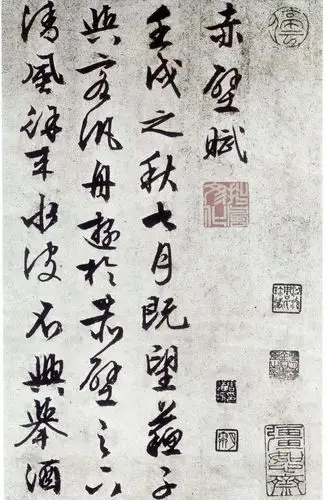 赤壁賦
壬戌之秋七月既望蘇子
與客汎舟遊於赤壁之下
清風徐來水波不興舉酒